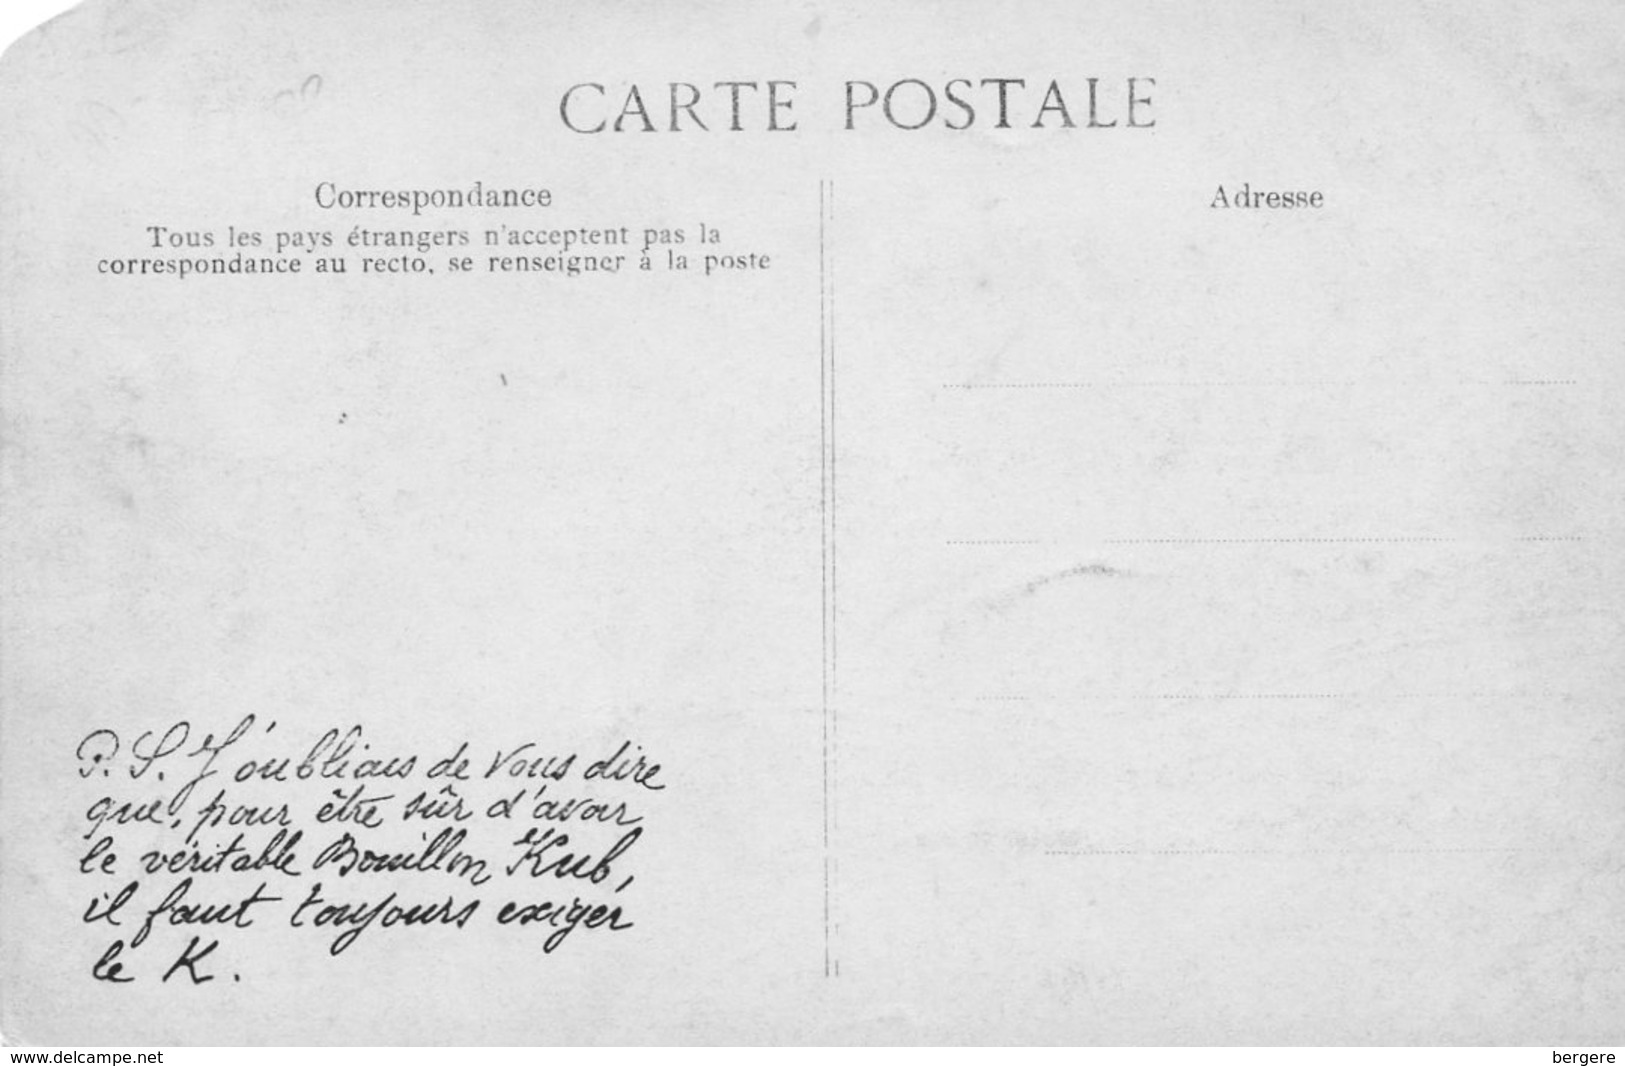 CARTE POSTALE
Correspondance
Tous les pays étrangers n'acceptent pas la
correspondance au recto, se renseigner à la poste
Adresse
P.S. J'oubliais de vous dire
que, pour être sûr d'avoir
le véritable Bouillon Kub,
il faut toujours exiger
le K.
www.delcampe.net
bergere